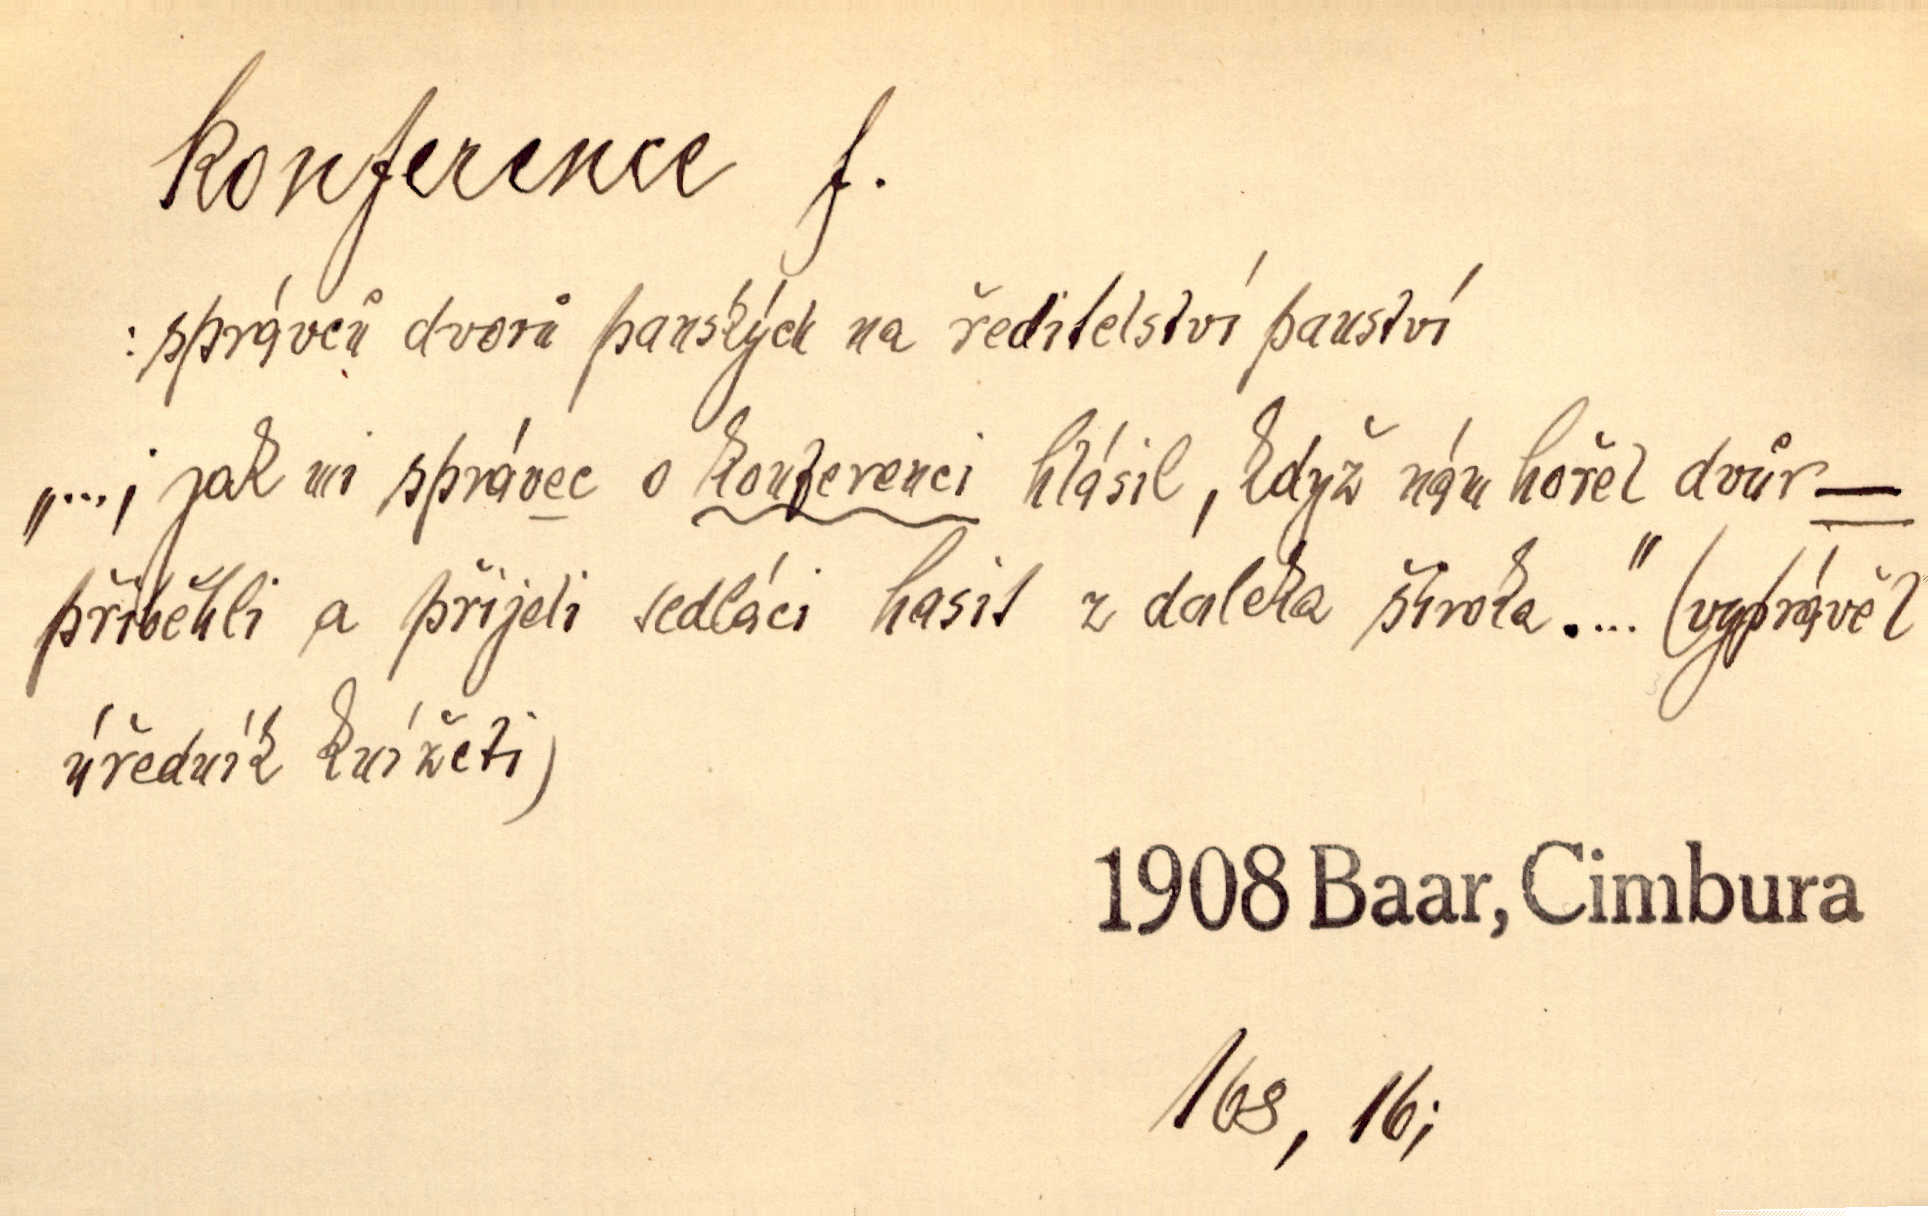 konference f.
: správců dvorů panských na ředitelství panství
„...; jak mi správec o konferenci hlásil, když nám hořel dvůr —
přiběhli a přijeli sedláci hasit z daleka široka...." (vyprávěl
úředník knížeti)
1908 Baar, Cimbura
168, 16;